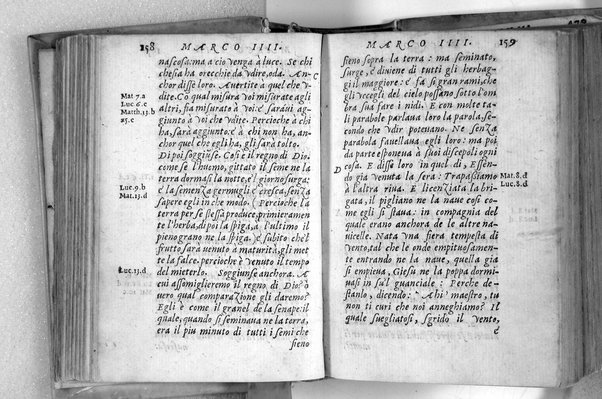 158
MARCO IIII.
nascosa: ma a ciò venga à luce. Se chi
che sia ha orecchie da vdire, oda. An-
chor disse loro. Auertite à quel che v-
dite. Cō qual misura voi misurate agli
altri, fia misurato à voi: e saraui ag-
giunto à voi che vdite. Percioche à chi
ha, sarà aggiunto: e à chi non ha, an-
chor quel che egli ha, gli sarà tolto.
Di poi soggiunse. Così è il regno di Dio,
come se l'huomo, gittato il seme ne la
terra dorma si la notte, e'l giorno surga:
e la semenza germugli e cresca, senza
sapere egli in che modo. (Percioche la
terra per se stessa produce, primieramente
l'herba, di poi la spiga, à l'ultimo il
pieno grano ne la spiga. e subito che'l
frutto sarà venuto à maturità, gli met-
te la falce, percioche è venuto il tempo
del mieterlo. Soggiunse anchora. A
cui assomiglieremo il regno di Dio? ò
uero qual comparatione gli daremo?
Egli è come il granel de la senape: il
quale, quando si seminaua ne la terra,
era il piu minuto di tutti i semi che
sieno
Mat. 7. a
Luc. 6. e
Matth. 13. b
25. c
Luc. 9. b
Mat. 13. d
Luc. 13. d
MARCO IIII.
159
sieno sopra la terra: ma seminato,
surge, e diuiene di tutti gli herbag-
gi il maggiore: e fa si gran rami, che
gli vccegli del cielo possano sotto l'om-
bra sua fare i nidi. E con molte ta-
li parabole parlaua loro la parola, se-
condo che vdir poteuano. Ne senza
parabola fauellaua egli loro: ma poi
da parte esponeua à suoi discepoli ogni
cosa. E disse loro in quel dì, Essen-
do gia venuta la sera: Trapassiamo
à l'altra riua. E licenziata la bri-
gata, il pigliano ne la naue così co-
me egli si staua: in compagnia del
quale erano anchora de le altre na-
uicelle. Nata vna fiera tempesta di
vento, tal che le onde empituosamen-
te entrando ne la naue, quella gia
si empieua, Giesu ne la poppa dormi-
uasi in sul guanciale: Perche de-
standolo, dicendo: Ahi maestro, tu
non ti curi che noi anneghiamo? Il
quale suegliatosi, sgridò il vento,
e
C
D
Mat. 8. d
Luc. 8. d